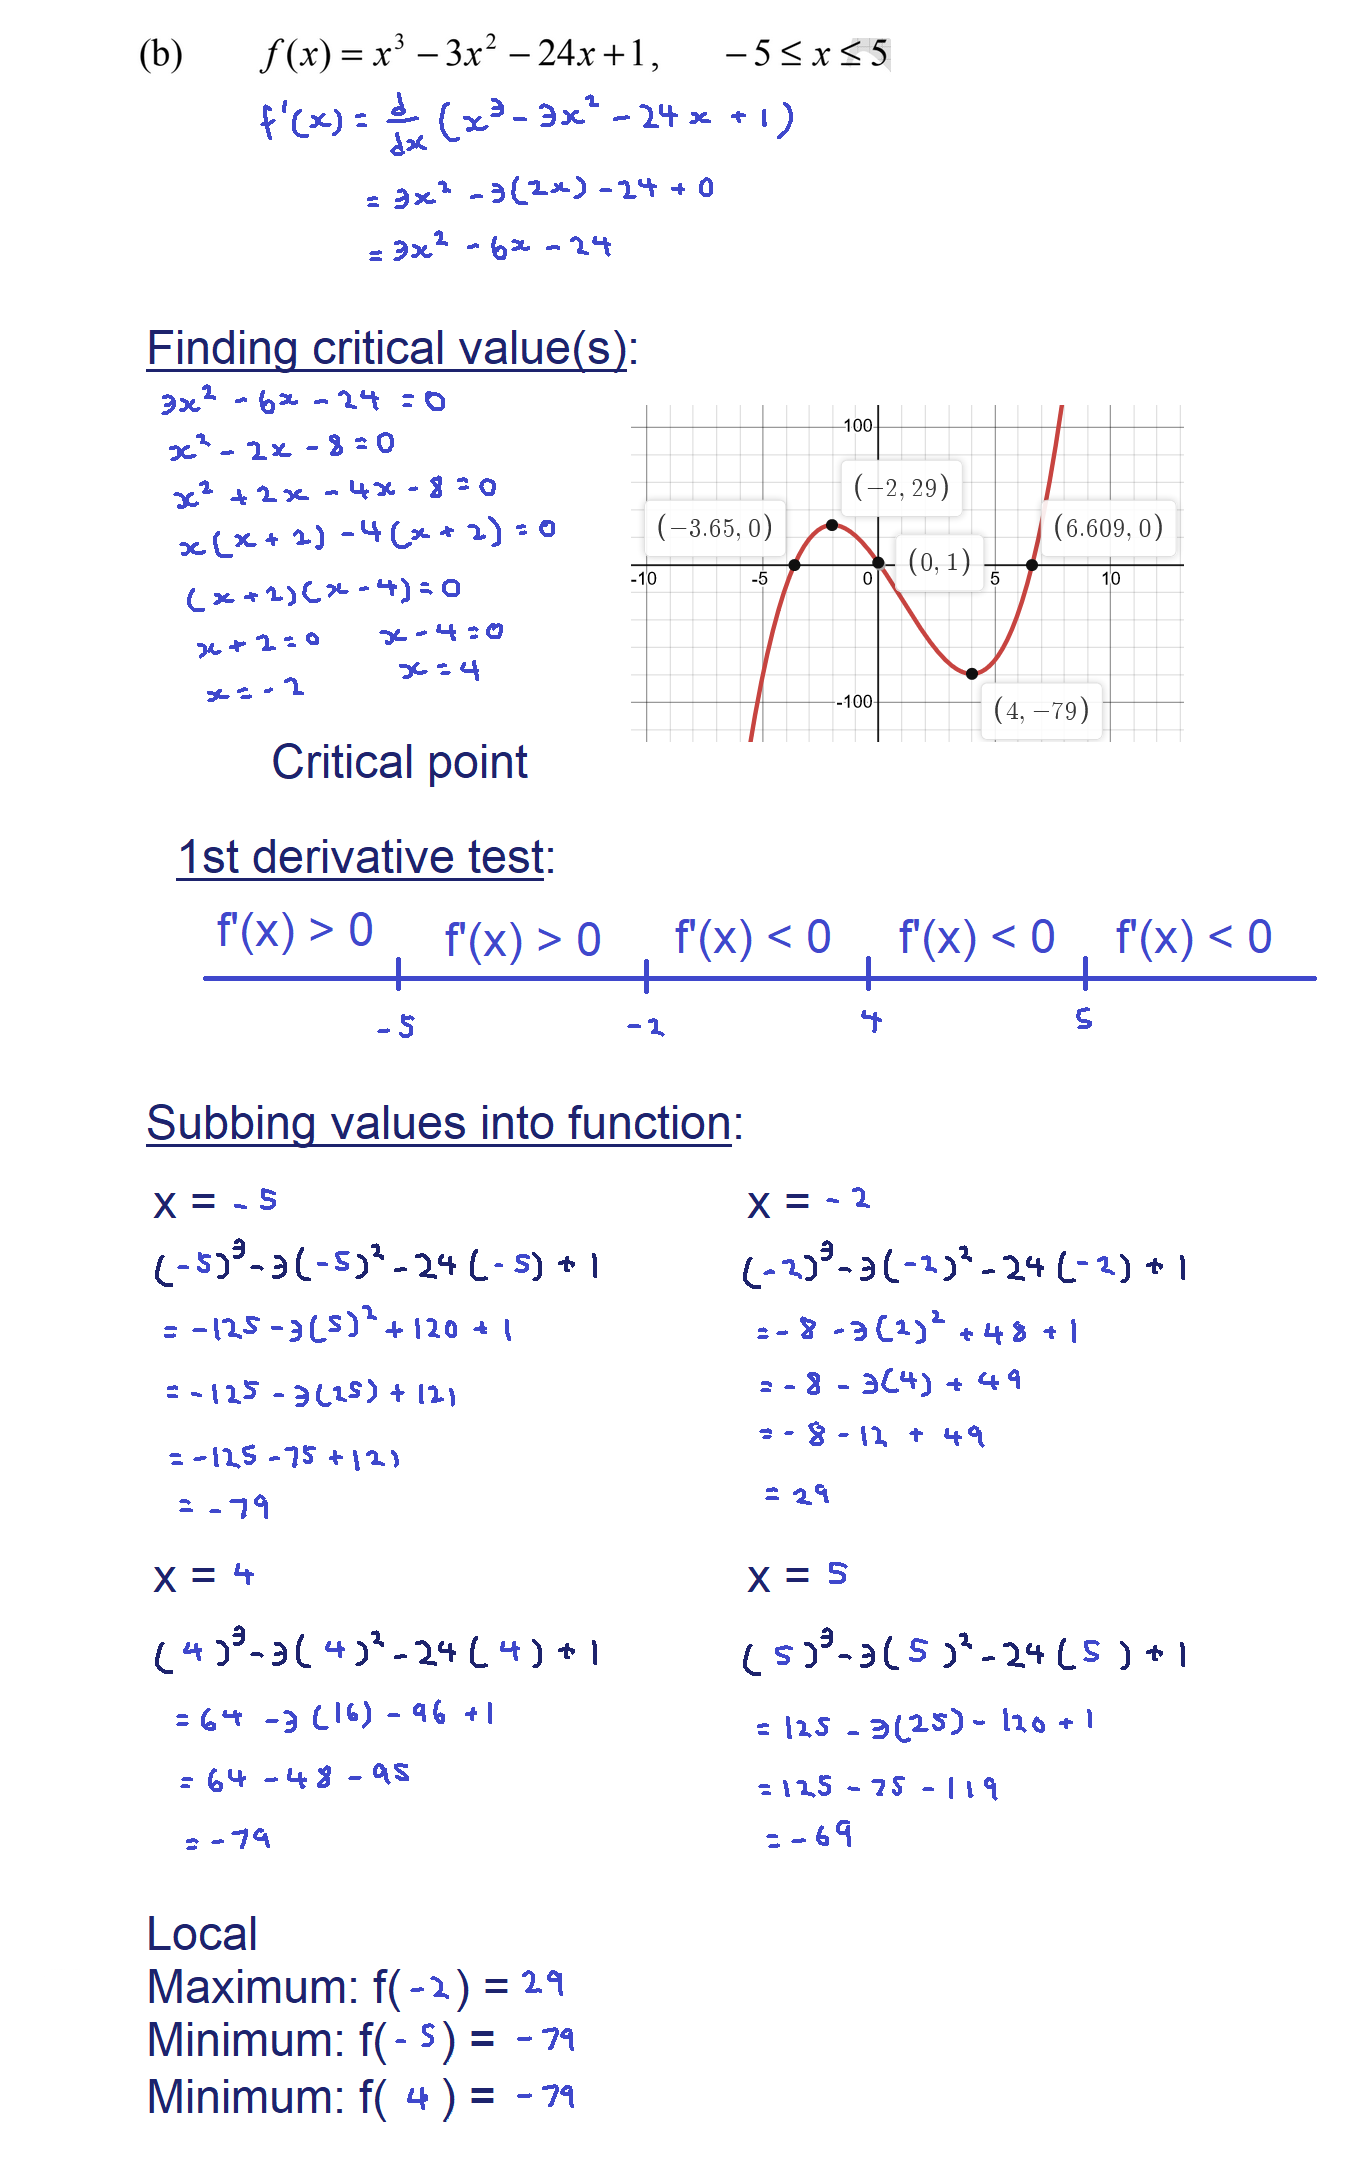 (b) f(x) = x³ − 3x² − 24x + 1, −5 ≤ x ≤ 5
f'(x) = d/dx (x³ - 3x² - 24x + 1)
= 3x² - 3(2x) - 24 + 0
= 3x² - 6x - 24
Finding critical value(s):
3x² - 6x - 24 = 0
x² - 2x - 8 = 0
x² + 2x - 4x - 8 = 0
x(x + 2) - 4(x + 2) = 0
(x + 2)(x - 4) = 0
x + 2 = 0 x - 4 = 0
x = -2 x = 4
100
(−2, 29)
(−3.65, 0) (6.609, 0)
(0, 1)
-10 -5 0 5 10
-100
(4, −79)
Critical point
1st derivative test:
f'(x) > 0 f'(x) > 0 f'(x) < 0 f'(x) < 0 f'(x) < 0
-5 -2 4 5
Subbing values into function:
x = -5
(-5)³ - 3(-5)² - 24(-5) + 1
= -125 - 3(5)² + 120 + 1
= -125 - 3(25) + 121
= -125 - 75 + 121
= -79
x = -2
(-2)³ - 3(-2)² - 24(-2) + 1
= -8 - 3(2)² + 48 + 1
= -8 - 3(4) + 49
= -8 - 12 + 49
= 29
x = 4
(4)³ - 3(4)² - 24(4) + 1
= 64 - 3(16) - 96 + 1
= 64 - 48 - 95
= -79
x = 5
(5)³ - 3(5)² - 24(5) + 1
= 125 - 3(25) - 120 + 1
= 125 - 75 - 119
= -69
Local
Maximum: f(-2) = 29
Minimum: f(-5) = -79
Minimum: f( 4 ) = -79